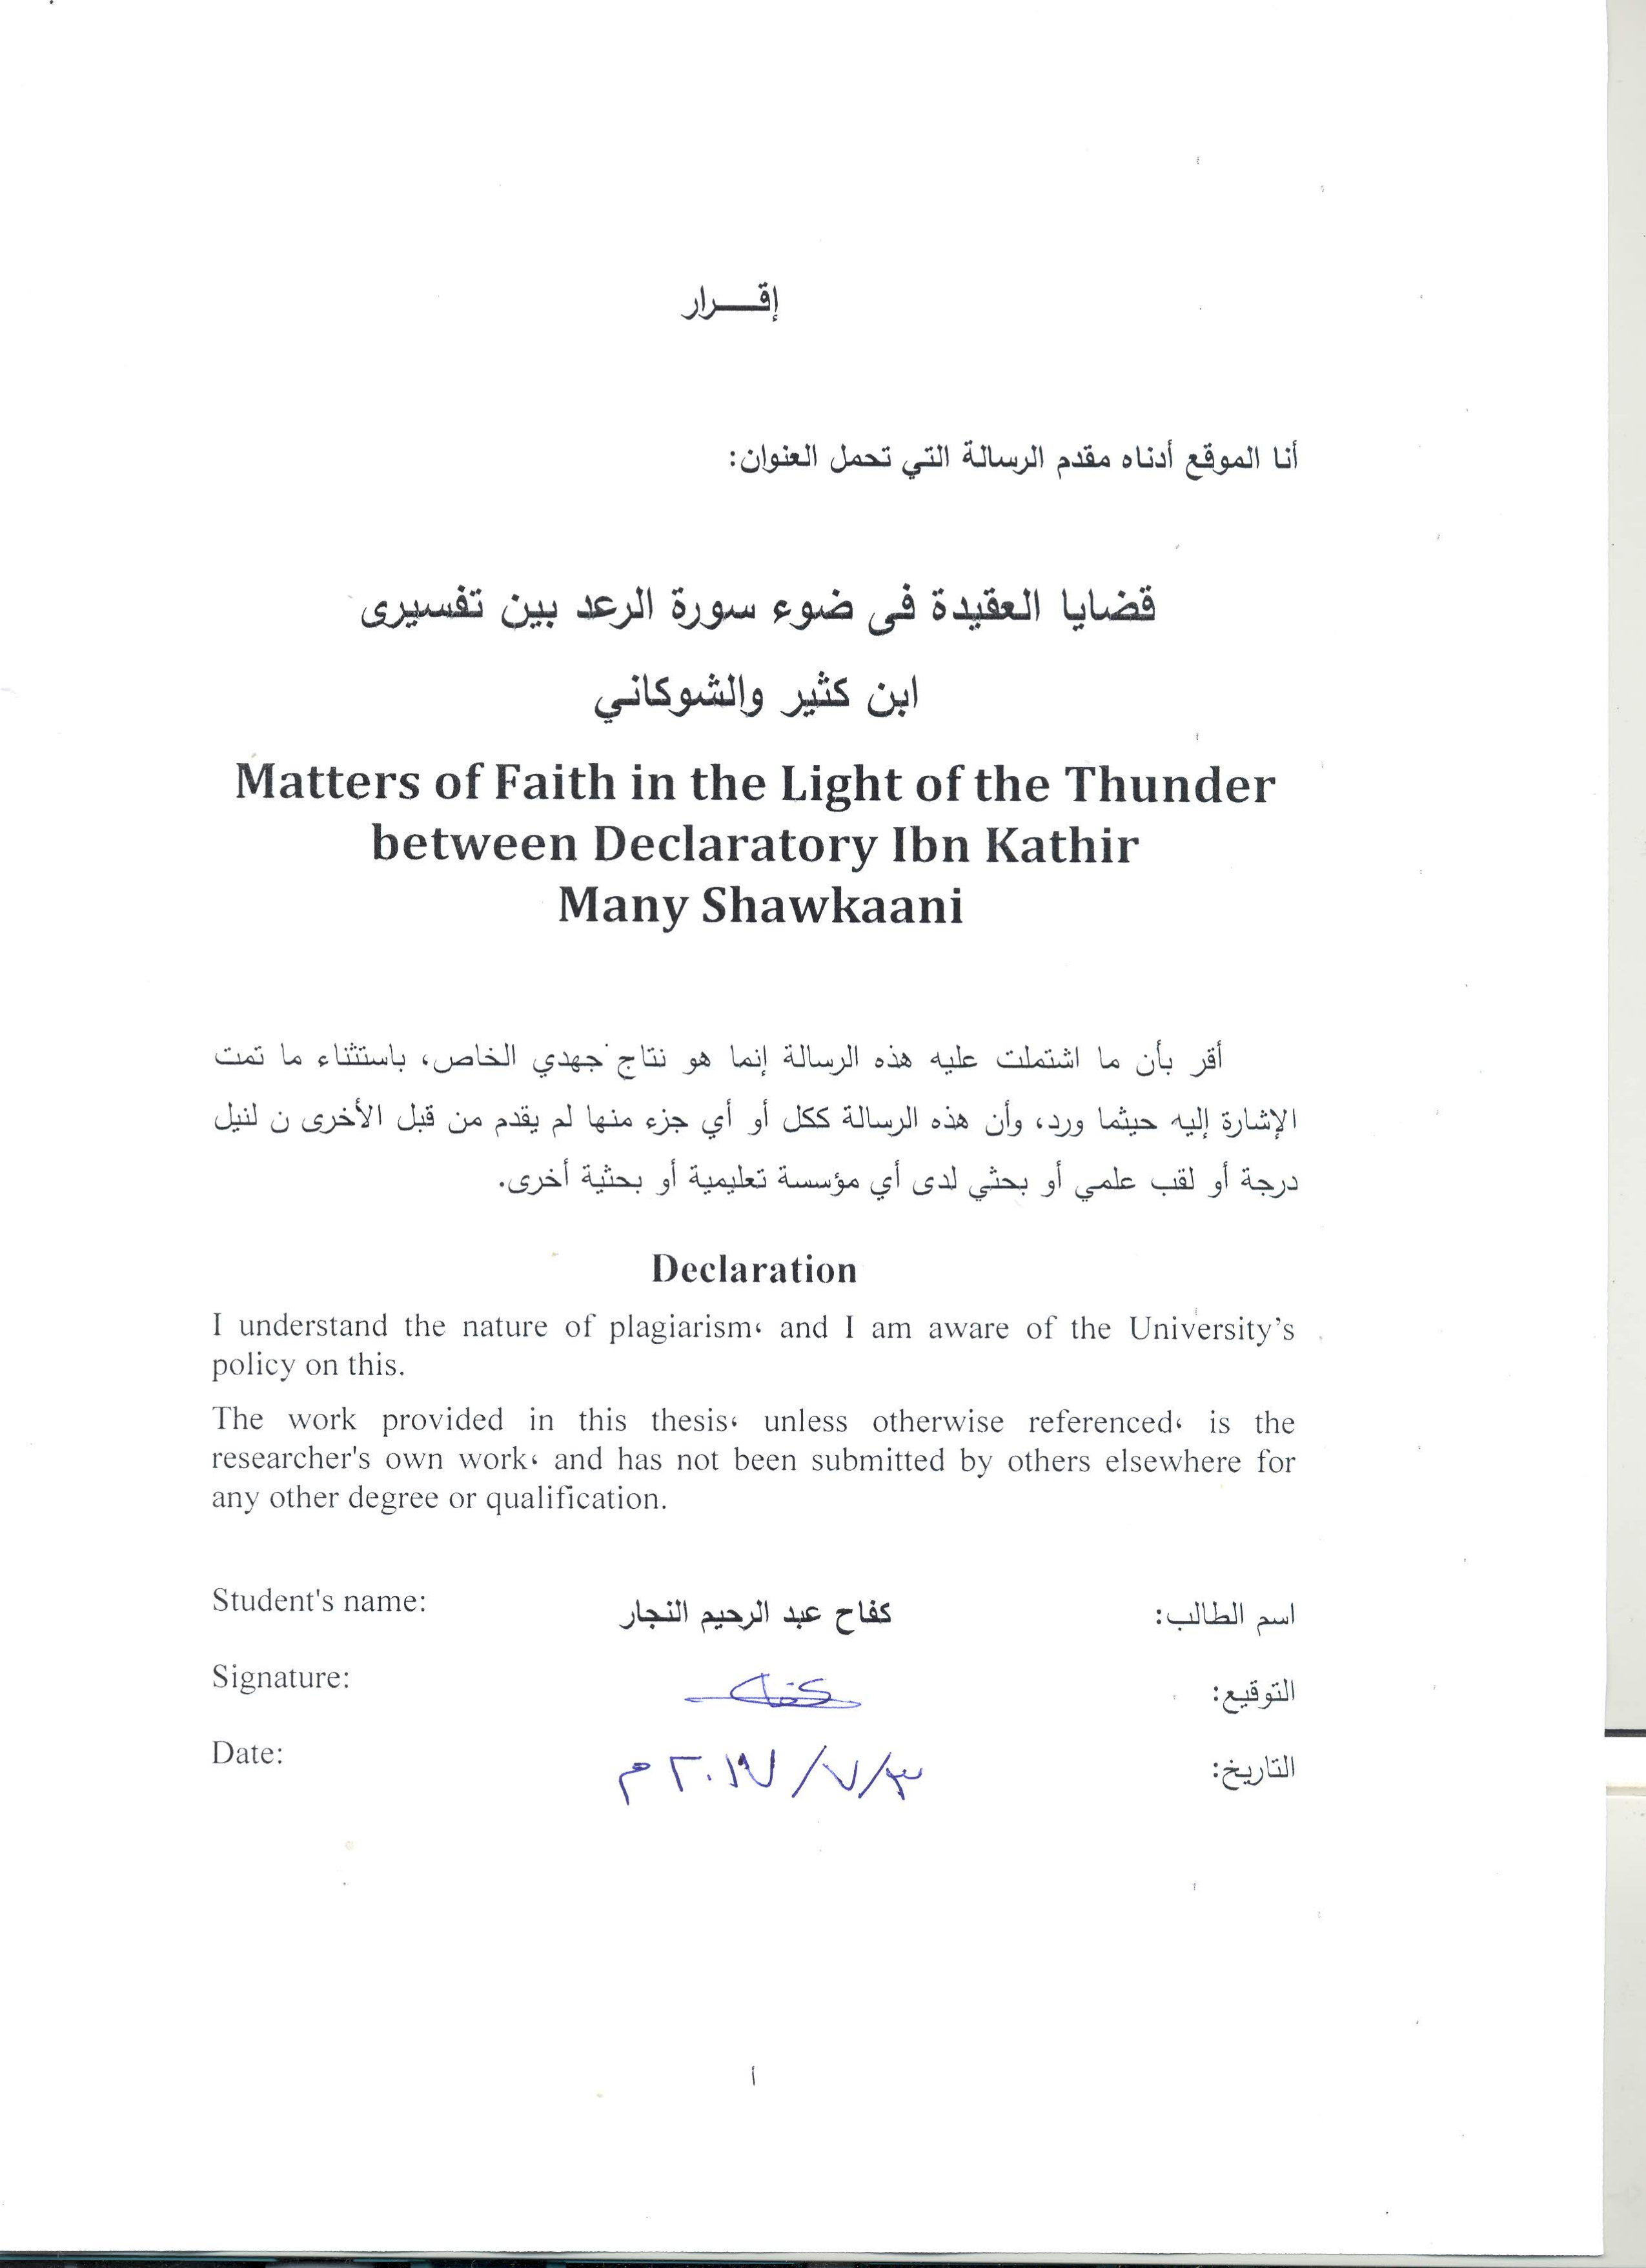 إقــــرار
أنا الموقع أدناه مقدم الرسالة التي تحمل العنوان:
قضايا العقيدة فى ضوء سورة الرعد بين تفسيرى
ابن كثير والشوكاني
Matters of Faith in the Light of the Thunder
between Declaratory Ibn Kathir
Many Shawkaani
أقر بأن ما اشتملت عليه هذه الرسالة إنما هو نتاج جهدي الخاص، باستثناء ما تمت
الإشارة إليه حيثما ورد، وأن هذه الرسالة ككل أو أي جزء منها لم يقدم من قبل الأخرى ن لنيل
درجة أو لقب علمي أو بحثي لدى أي مؤسسة تعليمية أو بحثية أخرى.
Declaration
I understand the nature of plagiarism، and I am aware of the University's
policy on this.
The work provided in this thesis، unless otherwise referenced، is the
researcher's own work، and has not been submitted by others elsewhere for
any other degree or qualification.
Student's name: كفاح عبد الرحيم النجار اسم الطالب:
Signature: كفاح التوقيع:
Date: ٣/٧/٢٠١٧م التاريخ:
أ